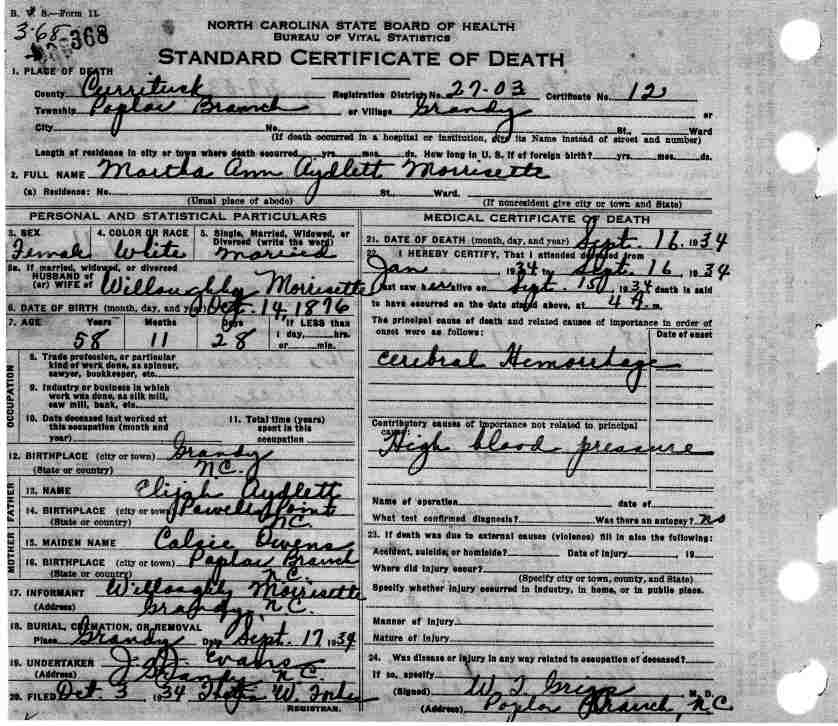 B. V. S.—Form 11.
NORTH CAROLINA STATE BOARD OF HEALTH
3-68
368
BUREAU OF VITAL STATISTICS
STANDARD CERTIFICATE OF DEATH
1. PLACE OF DEATH
County Currituck Registration District No. 27-03 Certificate No. 12
Township Poplar Branch or Village Grandy or
City No. St., Ward
(If death occurred in a hospital or institution, give its Name instead of street and number)
Length of residence in city or town where death occurred yrs. mos. ds. How long in U. S. if of foreign birth? yrs. mos. ds.
2. FULL NAME Martha Ann Aydlett Morrisette
(a) Residence: No. St., Ward.
(Usual place of abode) (If nonresident give city or town and State)
PERSONAL AND STATISTICAL PARTICULARS
3. SEX 4. COLOR OR RACE 5. Single, Married, Widowed, or Divorced (write the word)
Female White Married
5a. If married, widowed, or divorced
HUSBAND of
(or) WIFE of Willoughby Morrisette
6. DATE OF BIRTH (month, day, and year) Oct. 14, 1876
7. AGE Years Months Days If LESS than
58 11 28 1 day, hrs.
or min.
OCCUPATION
8. Trade profession, or particular
kind of work done, as spinner,
sawyer, bookkeeper, etc.
9. Industry or business in which
work was done, as silk mill,
saw mill, bank, etc.
10. Date deceased last worked at
this occupation (month and
year)
11. Total time (years)
spent in this
occupation
12. BIRTHPLACE (city or town) Grandy
(State or country) N.C.
FATHER
13. NAME Elijah Aydlett
14. BIRTHPLACE (city or town) Powells Point
(State or country) N.C.
MOTHER
15. MAIDEN NAME Owens
16. BIRTHPLACE (city or town) Poplar Branch
(State or country) N.C.
17. INFORMANT Willoughby Morrisette
(Address) Grandy, N.C.
18. BURIAL, CREMATION, OR REMOVAL
Place Grandy Date Sept. 17 1934
19. UNDERTAKER Evans
(Address) Grandy N.C.
20. FILED Oct. 3 1934 W. Forbes
REGISTRAR.
MEDICAL CERTIFICATE OF DEATH
21. DATE OF DEATH (month, day, and year) Sept. 16, 1934
22. I HEREBY CERTIFY, That I attended deceased from
Jan 1934 to Sept. 16, 1934
I last saw her alive on Sept. 15, 1934 death is said
to have occurred on the date stated above, at 4 A. m.
The principal cause of death and related causes of importance in order of
onset were as follows:
Date of onset
Cerebral Hemorrhage
Contributory causes of importance not related to principal
cause:
High blood pressure
Name of operation date of
What test confirmed diagnosis? Was there an autopsy? no
23. If death was due to external causes (violence) fill in also the following:
Accident, suicide, or homicide? Date of injury 19
Where did injury occur?
(Specify city or town, county, and State)
Specify whether injury occurred in industry, in home, or in public place.
Manner of injury
Nature of injury
24. Was disease or injury in any way related to occupation of deceased?
If so, specify
(Signed) W. T. Griggs M. D.
(Address) Poplar Branch N C